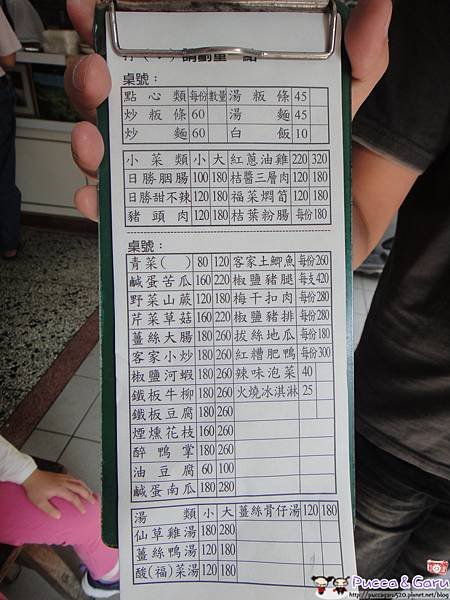 請劃單一點
桌號:
點心類 每份 數量 湯粄條 45
炒粄條 60 湯麵 45
炒麵 60 白飯 10
小菜類 小 大 紅蔥油雞 220 320
日勝胭腸 100 180 桔醬三層肉 120 180
日勝甜不辣 120 180 福菜燜筍 120 180
豬頭肉 120 180 桔葉粉腸 每份180
桌號:
青菜( ) 80 120 客家土鯽魚 每份260
鹹蛋苦瓜 160 220 椒鹽豬腿 每支420
野菜山蕨 120 180 梅干扣肉 每份280
芹菜草菇 160 220 椒鹽豬排 每份280
薑絲大腸 180 260 拔絲地瓜 每份180
客家小炒 180 260 紅糟肥鴨 每份300
椒鹽河蝦 180 260 辣味泡菜 40
鐵板牛柳 180 260 火燒冰淇淋 25
鐵板豆腐 180 260
煙燻花枝 160 260
醉鴨掌 180 260
油豆腐 60 100
鹹蛋南瓜 180 280
湯類 小 大 薑絲骨仔湯 120 180
仙草雞湯 180 280
薑絲鴨湯 120 180
酸(福)菜湯 120 180
Pucca & Garu
http://puccagaru520.pixnet.net/blog